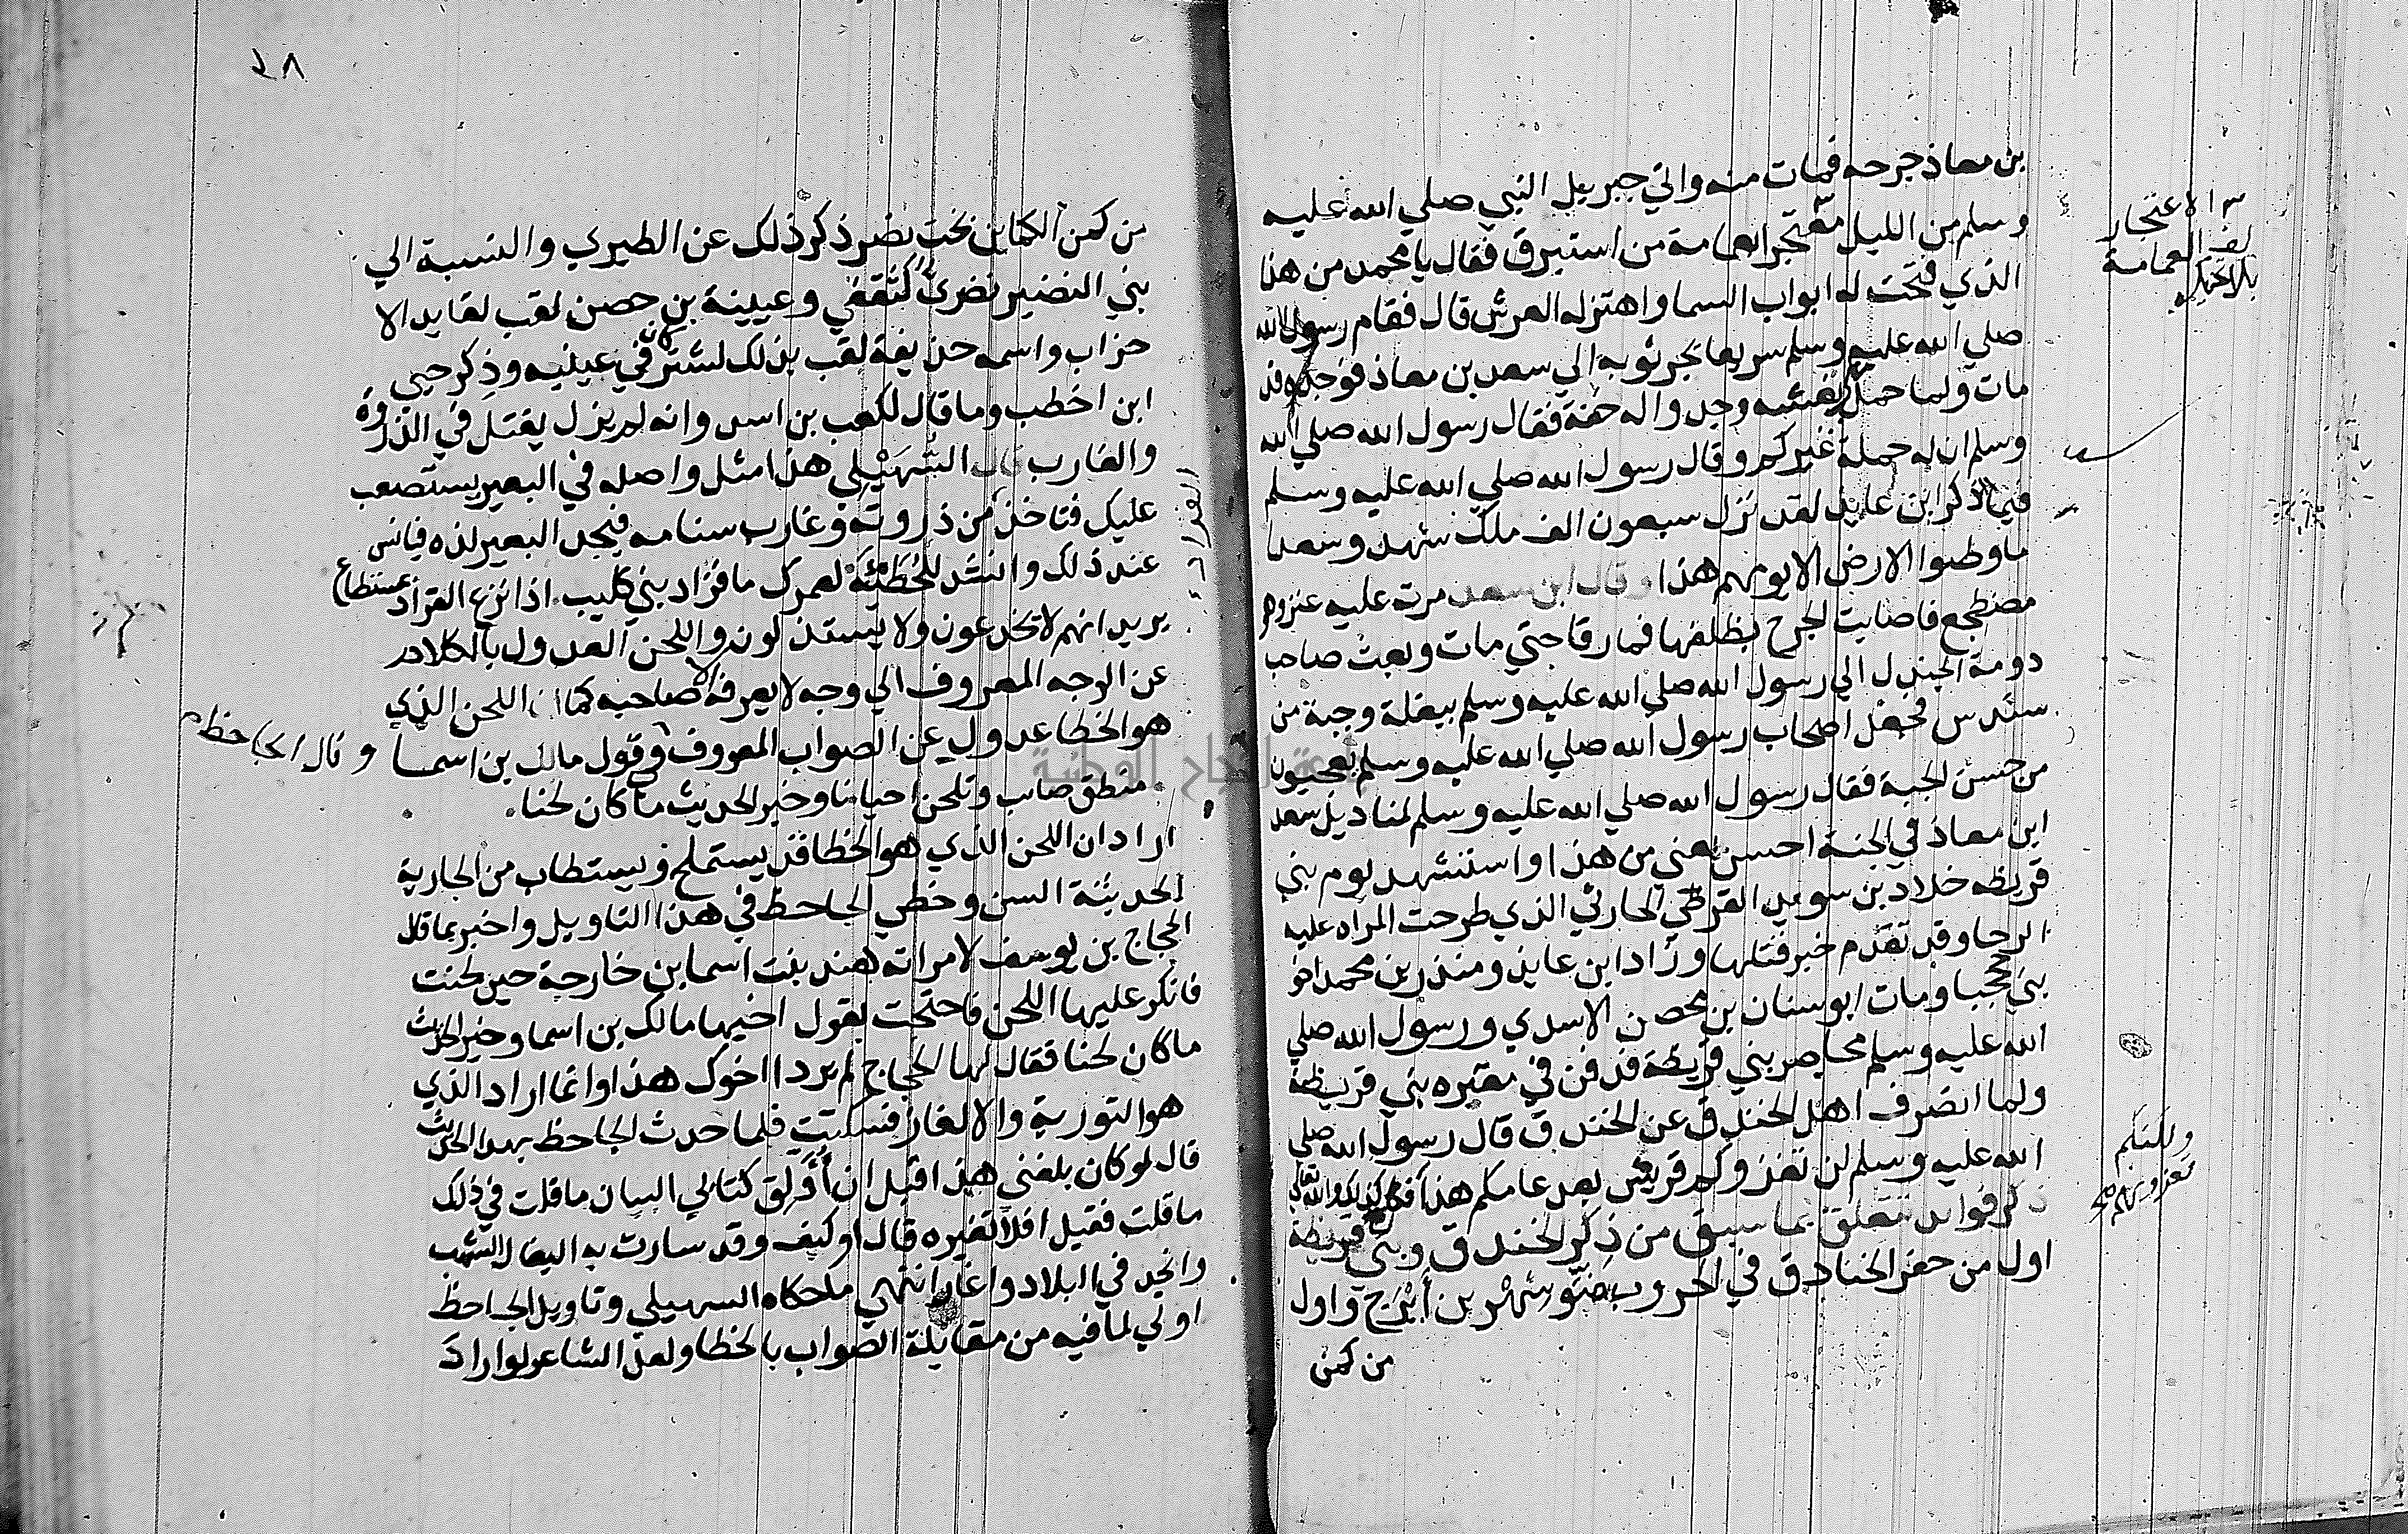 بن معاذ جرحه فمات منه واتي جبريل النبي صلي الله عليه
وسلم من الليل معتجرا بعمامة من استبرق فقال يا محمد من هذا
الذي فتحت له ابواب السما واهتز له العرش قال فقام رسول الله
صلي الله عليه وسلم سريعا يجر ثوبه الي سعد بن معاذ فوجده قد
مات ولما حمل نعشه وجدوا له خفة فقال رسول الله صلي الله
وسلم ان له حملة غيركم وقال رسول الله صلي الله عليه وسلم
فيما ذكر ابن عايد لقد نزل سبعون الف ملك شهد وسعدا
ما وطوا الارض الا يومهم هذا وقال ابن سعد مرت عليه عنز وهو
مضطجع فاصابت الجرح بظلفها فما رقا حتي مات وبعث صاحب
دومة الجندل الي رسول الله صلي الله عليه وسلم ببغلة وجبة من
سندس فجعل اصحاب رسول الله صلي الله عليه وسلم يعجبون
من حسن الجبة فقال رسول الله صلي الله عليه وسلم لمناديل سعد
ابن معاذ في الجنة احسن يعني من هذا واستشهد يوم بني
قريظه خلاد بن سويد القرظي الحارثي الذي طرحت المراه عليه
الرحا وقد تقدم خبر قتلها وزاد ابن عايذ ومنذر بن محمد اخو
بني جحجبا ومات ابو سنان بن محصن الاسدي ورسول الله صلي
الله عليه وسلم محاصر بني قريظة فدفن في مقبره بني قريظة
ولما انصرف اهل الخندق عن الخندق قال رسول الله صلي
الله عليه وسلم لن تغزوكم قريش بعد عامكم هذا فكان كذلك
ذكر فوايد تتعلق بما سبق من ذكر الخندق وبني قريظة
اول من حفر الخنادق في الحروب منوشهر بن أيرج واول
من كمن
م الاعتجار
لف العمامة
بلا تحنيك
ولكنكم
تغزونهم صح
٢٨
من كمن الكماين بخت نصر ذكر ذلك عن الطبري والنسبة الي
بني النضير نضري كثقفي وعيينة بن حصن لقب لقايد الا
حزاب واسمه حذيفة لقب بذلك لشتر كان في عينيه وذكر حيي
ابن اخطب وما قال لكعب بن اسد وانه لم يزل يفتل في الذروة
والغارب قال السُّهَيْلي هذا مثل واصله في البعير يستصعب
عليك فتاخذ من ذروته وغارب سنامه فيجد البعير لذه فيانس
عند ذلك وانشد للحُطَيْئة لعمرك ما قراد بني كليب اذا نزع القراد بمستطاع
يريد انهم لا يخدعون ولا يستذلون واللحن العدول بالكلام
عن الوجه المعروف الي وجه لا يعرفه الا صاحبه كما ان اللحن الذي
هو الخطا عدول عن الصواب المعروف وقول مالك بن اسما وقال الجاحظ
منطق صايب وتلحن احيانا وخير الحديث ما كان لحنا
اراد ان اللحن الذي هو الخطا قد يستملح ويستطاب من الجارية
الحديثة السن وخطي الجاحظ في هذا التاويل واخبر بما قال
الحجاج بن يوسف لامراته هند بنت اسما بن خارجة حين لحنت
فانكر عليها اللحن فاحتجت بقول اخيها مالك بن اسما وخير الحديث
ما كان لحنا فقال لها الحجاج لم يرد اخوك هذا وانما اراد الذي
هو التورية والالغاز فسكتت فلما حدث الجاحظ بهذا الحديث
قال لو كان بلغني هذا قبل ان أؤلق كتابي البيان ما قلت في ذلك
ما قلت فقيل افلا تغيره قال وكيف وقد سارت به البغال الشهب
وانجد في البلاد واغار انتهي ما حكاه السهيلي وتاويل الجاحظ
اولي لما فيه من مقابلة الصواب بالخطا ولعل الشاعر لو اراد